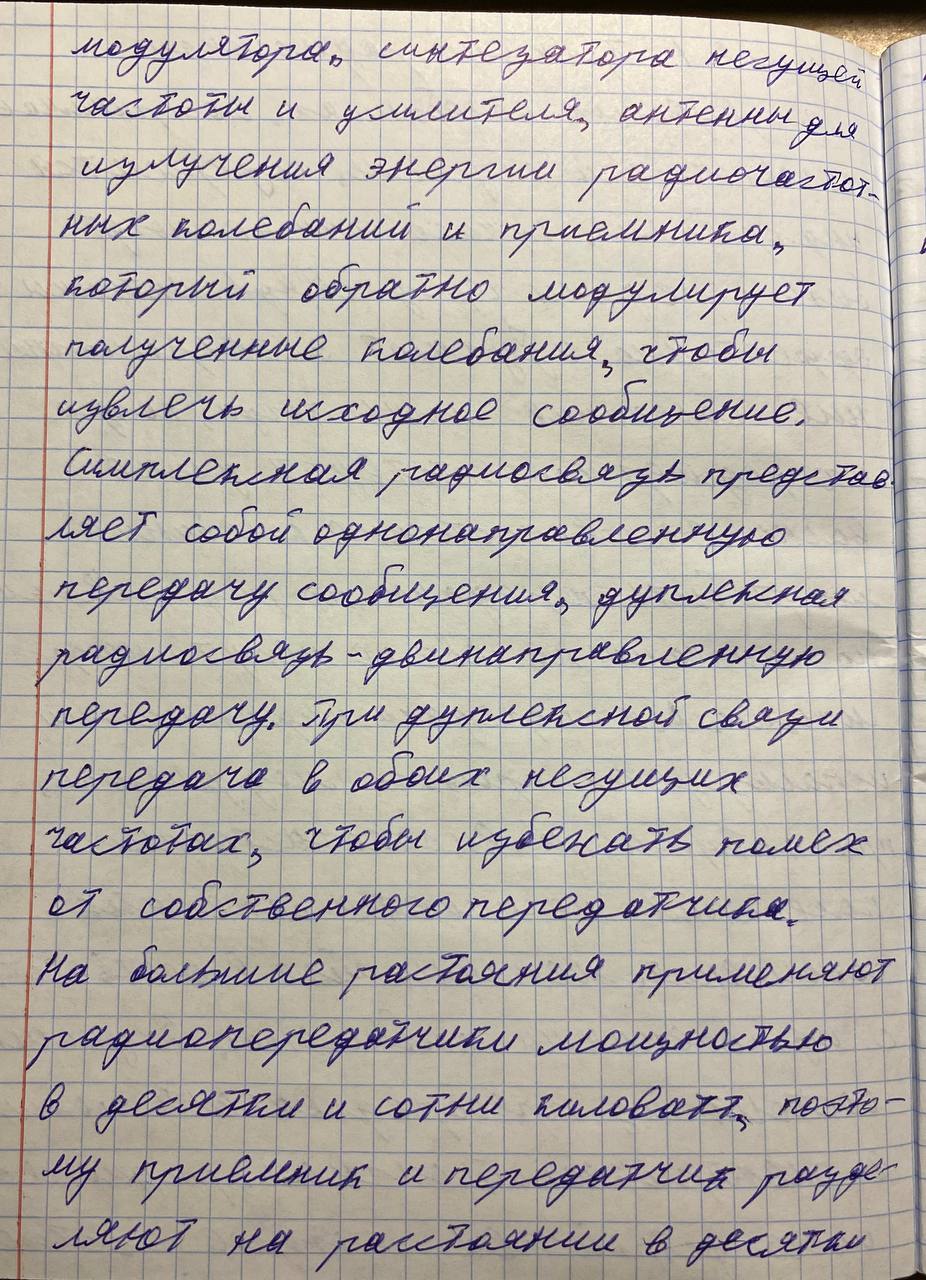 модулятора, синтезатора несущей
частоты и усилителя, антенны для
излучения энергии радиочастот-
ных колебаний и приемника,
который обратно модулирует
полученные колебания, чтобы
извлечь исходное сообщение.
Симплексная радиосвязь представ-
ляет собой однонаправленную
передачу сообщения, дуплексная
радиосвязь - двинаправленную
передачу. При дуплексной связи
передача в обоих несущих
частотах, чтобы избежать помех
от собственного передатчика.
На большие растояния применяют
радиопередатчики мощностью
в десятки и сотни киловатт, поэто-
му приемник и передатчик разде-
ляют на расстоянии в десятки